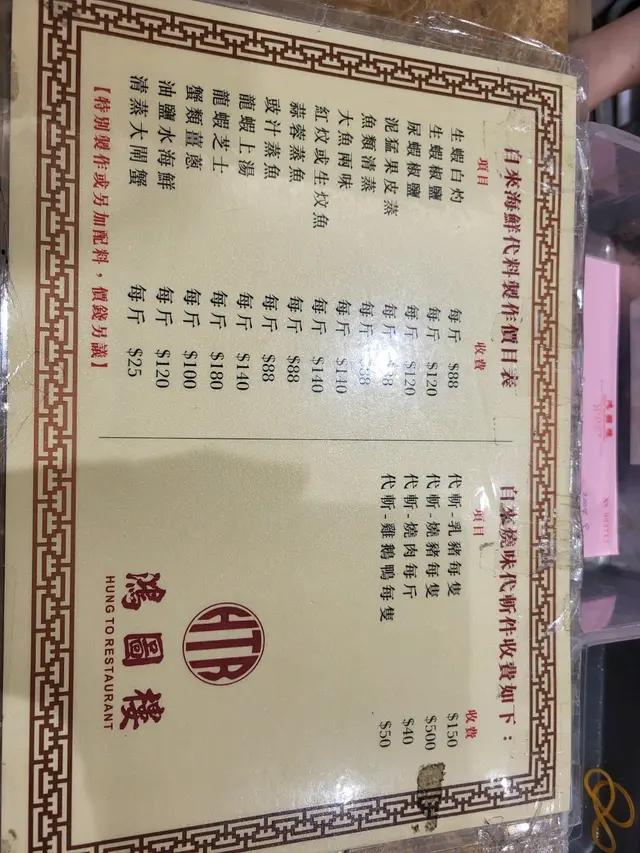 自來海鮮代料製作價目表
項目 收費
生蝦白灼 每斤 $88
生蝦椒鹽 每斤 $120
尿蝦椒鹽 每斤 $120
泥猛果皮蒸 每斤
魚類清蒸 每斤
大魚兩味 每斤 $140
紅炆或生炆魚 每斤 $140
蒜蓉蒸魚 每斤 $88
豉汁蒸魚 每斤 $88
龍蝦上湯 每斤 $140
龍蝦芝士 每斤 $180
蟹類薑蔥 每斤 $100
油鹽水海鮮 每斤 $120
清蒸大閘蟹 每斤 $25
【特別製作或另加配料，價錢另議】
自來燒味代斬件收費如下：
項目 收費
代斬-乳豬每隻 $150
代斬-燒豬每隻 $500
代斬-燒肉每斤 $40
代斬-雞鵝鴨每隻 $50
HTR
鴻圖樓
HUNG TO RESTAURANT
鴻圖樓